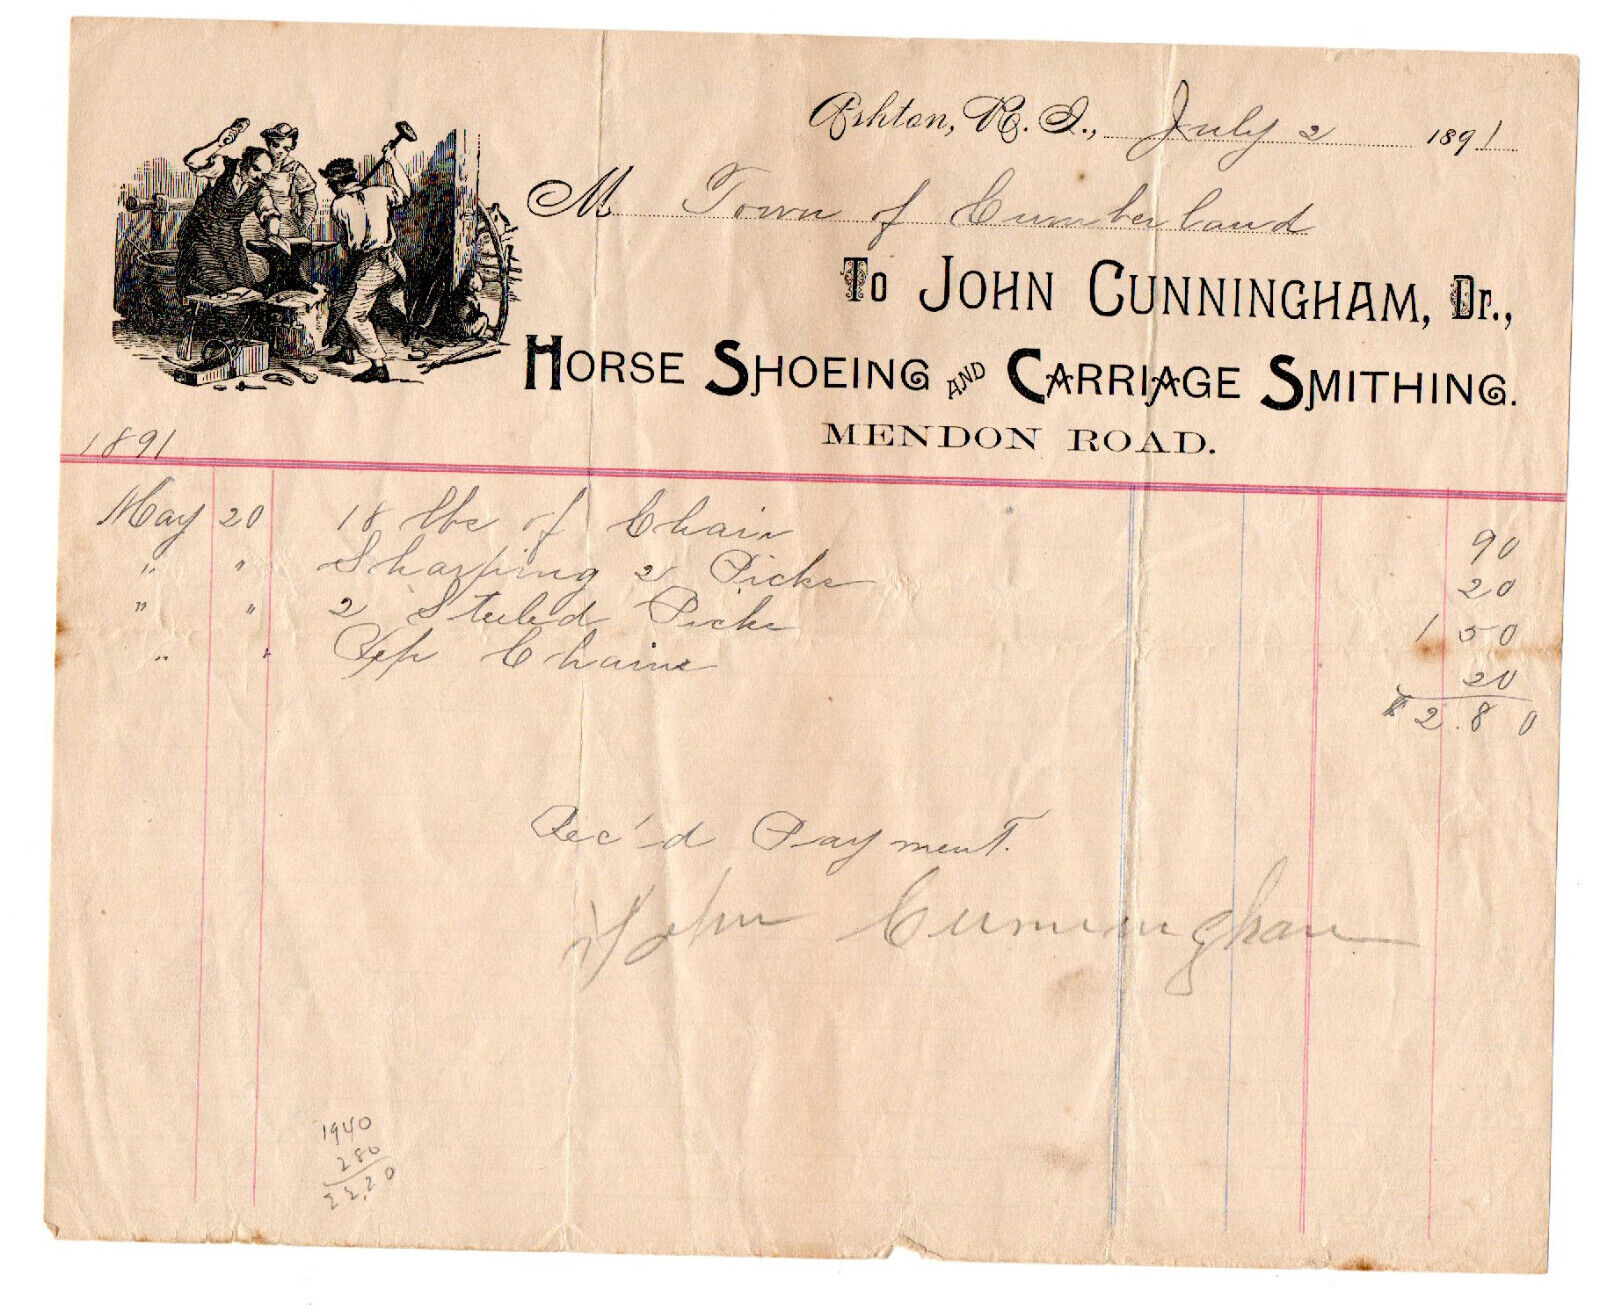 Ashton, R. I., July 2 1891
M Town of Cumberland
To John Cunningham, Dr.,
Horse Shoeing and Carriage Smithing.
Mendon Road.
1891
May 20 18 lbs of Chain 90
" " Sharping 2 Picks 20
" " 2 Steeled Picks 1 50
" " Rep Chains 20
$2.80
Rec'd Payment.
John Cunningham
1940
280
22.20